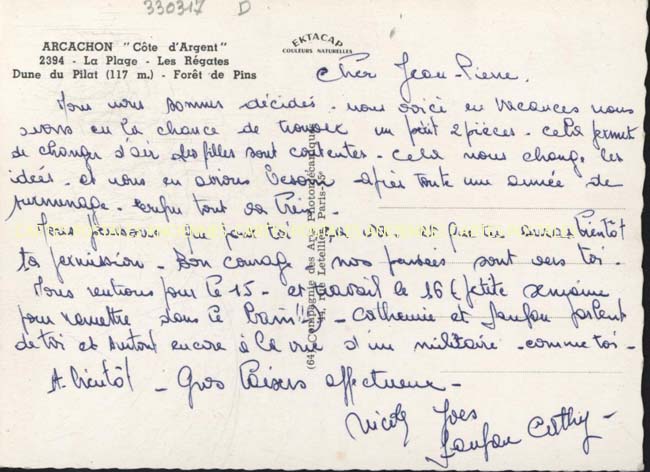 330317 D
EKTACAP
COULEURS NATURELLES
ARCACHON "Côte d'Argent"
2394 - La Plage - Les Régates
Dune du Pilat (117 m.) - Forêt de Pins
Cher Jean-Pierre.
Nous nous sommes décidés - nous voici en vacances nous
avons eu la chance de trouver un petit 2 pièces - cela permet
de changer d'air les filles sont contentes - cela nous change les
idées - et nous en avions besoin après toute une année de
surmenage - enfin tout va bien -
Nous pensons que pour toi ça va - et que tu auras bientôt
ta permission - Bon courage nos pensées sont vers toi -
Nous rentrons pour le 15 - et travail le 16 (petite semaine
pour remettre dans le bain!!! - Catherine et parlent
de toi et surtout encore à la vue d'un militaire - comme toi -
A bientôt - Gros baisers affectueux -
Nicole Yves
Cathy -
(64) Compagnie des Arts Photomécaniques
44, rue Letellier, Paris-15